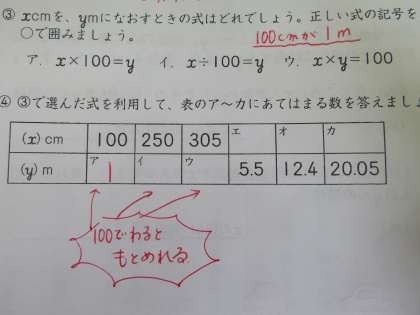 ③ xcmを、ymになおすときの式はどれでしょう。正しい式の記号を
○で囲みましょう。
100cmが1m
ア. x×100=y イ. x÷100=y ウ. x×y=100
④ ③で選んだ式を利用して、表のア～カにあてはまる数を答えましょ
(x) cm 100 250 305 エ オ カ
(y) m ア 1 イ ウ 5.5 12.4 20.05
100でわると
もとめれる